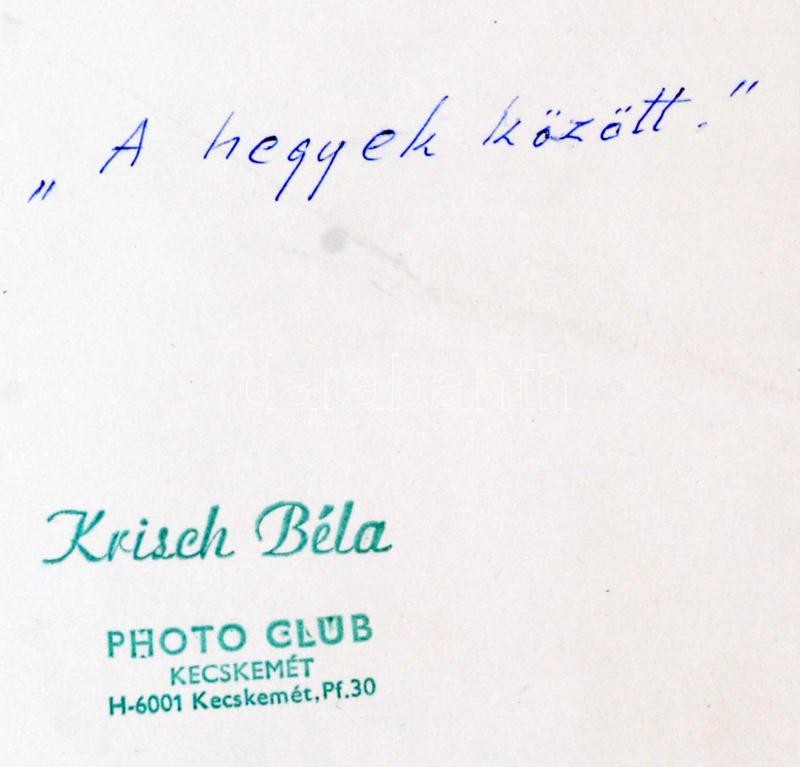 „A hegyek között."
darabanth
Krisch Béla
PHOTO CLUB
KECSKEMÉT
H-6001 Kecskemét, Pf.30